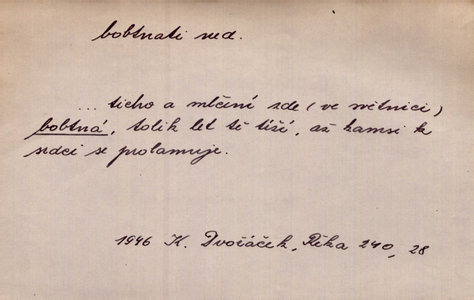 bobtnati ned.
... ticho a mlčení zde (ve světnici)
bobtná, tolik let tě tíží, až kamsi k
srdci se prolamuje.
1946 K. Dvořáček, Řeka 240, 28